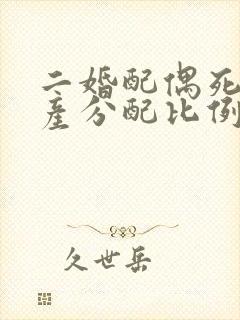 二婚配偶死
产分配比例
久世岳